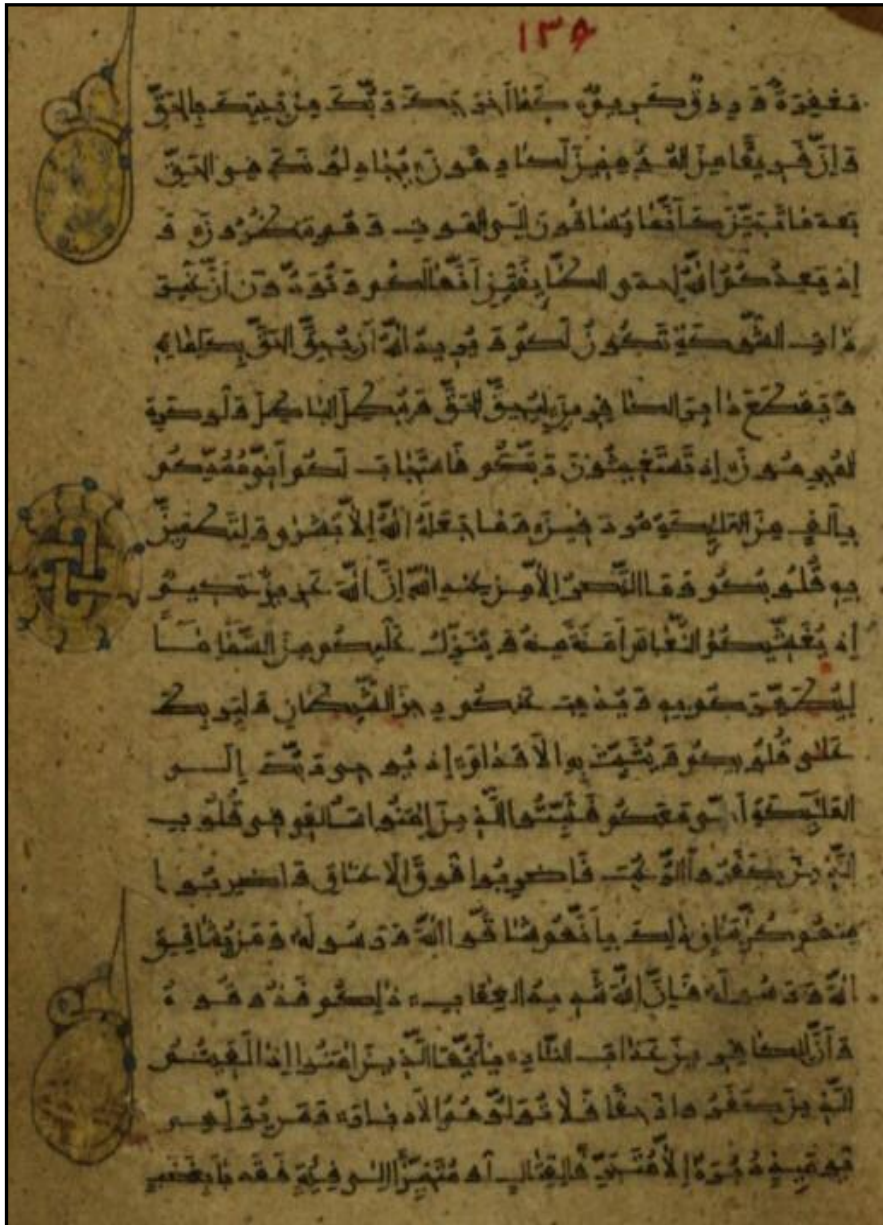 مَغْفِرَةٌ وَرِزْقٌ كَرِيمٌ كَمَا أَخْرَجَكَ رَبُّكَ مِنْ بَيْتِكَ بِالْحَقِّ
وَإِنَّ فَرِيقًا مِنَ الْمُؤْمِنِينَ لَكَارِهُونَ يُجَادِلُونَكَ فِي الْحَقِّ
بَعْدَ مَا تَبَيَّنَ كَأَنَّمَا يُسَاقُونَ إِلَى الْمَوْتِ وَهُمْ يَنْظُرُونَ وَ
إِذْ يَعِدُكُمُ اللَّهُ إِحْدَى الطَّائِفَتَيْنِ أَنَّهَا لَكُمْ وَتَوَدُّونَ أَنَّ غَيْرَ
ذَاتِ الشَّوْكَةِ تَكُونُ لَكُمْ وَيُرِيدُ اللَّهُ أَنْ يُحِقَّ الْحَقَّ بِكَلِمَاتِهِ
وَيَقْطَعَ دَابِرَ الْكَافِرِينَ لِيُحِقَّ الْحَقَّ وَيُبْطِلَ الْبَاطِلَ وَلَوْ كَرِهَ
الْمُجْرِمُونَ إِذْ تَسْتَغِيثُونَ رَبَّكُمْ فَاسْتَجَابَ لَكُمْ أَنِّي مُمِدُّكُمْ
بِأَلْفٍ مِنَ الْمَلَائِكَةِ مُرْدِفِينَ وَمَا جَعَلَهُ اللَّهُ إِلَّا بُشْرَى وَلِتَطْمَئِنَّ
بِهِ قُلُوبُكُمْ وَمَا النَّصْرُ إِلَّا مِنْ عِنْدِ اللَّهِ إِنَّ اللَّهَ عَزِيزٌ حَكِيمٌ
إِذْ يُغَشِّيكُمُ النُّعَاسَ أَمَنَةً مِنْهُ وَيُنَزِّلُ عَلَيْكُمْ مِنَ السَّمَاءِ مَاءً
لِيُطَهِّرَكُمْ بِهِ وَيُذْهِبَ عَنْكُمْ رِجْزَ الشَّيْطَانِ وَلِيَرْبِطَ
عَلَى قُلُوبِكُمْ وَيُثَبِّتَ بِهِ الْأَقْدَامَ إِذْ يُوحِي رَبُّكَ إِلَى
الْمَلَائِكَةِ أَنِّي مَعَكُمْ فَثَبِّتُوا الَّذِينَ آمَنُوا سَأُلْقِي فِي قُلُوبِ
الَّذِينَ كَفَرُوا الرُّعْبَ فَاضْرِبُوا فَوْقَ الْأَعْنَاقِ وَاضْرِبُوا
مِنْهُمْ كُلَّ بَنَانٍ ذَلِكَ بِأَنَّهُمْ شَاقُّوا اللَّهَ وَرَسُولَهُ وَمَنْ يُشَاقِقِ
اللَّهَ وَرَسُولَهُ فَإِنَّ اللَّهَ شَدِيدُ الْعِقَابِ ذَلِكُمْ فَذُوقُوهُ
وَأَنَّ لِلْكَافِرِينَ عَذَابَ النَّارِ يَا أَيُّهَا الَّذِينَ آمَنُوا إِذَا لَقِيتُمُ
الَّذِينَ كَفَرُوا زَحْفًا فَلَا تُوَلُّوهُمُ الْأَدْبَارَ وَمَنْ يُوَلِّهِمْ
يَوْمَئِذٍ دُبُرَهُ إِلَّا مُتَحَرِّفًا لِقِتَالٍ أَوْ مُتَحَيِّزًا إِلَى فِئَةٍ فَقَدْ بَاءَ بِغَضَبٍ